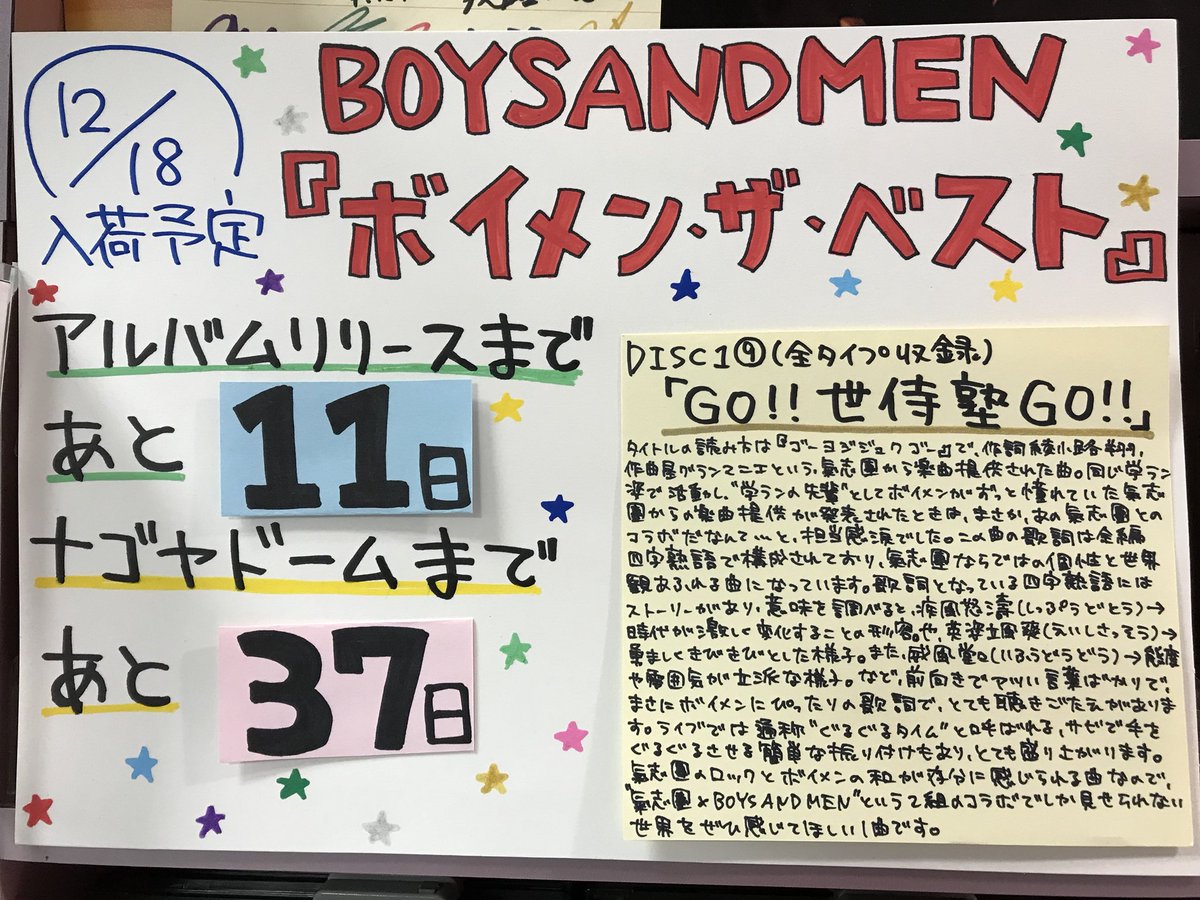 12/18
入荷予定
BOYSANDMEN
『ボイメン・ザ・ベスト』
アルバムリリースまで
あと 11日
ナゴヤドームまで
あと 37日
DISC1⑨(全タイプ収録)
「GO!! 世侍塾 GO!!」
タイトルの読み方は『ゴーヨジジュクゴー』で、作詞 綾小路 翔、
作曲 星グランマニエという、氣志團から楽曲提供された曲。同じ学ラン
姿で活動し、"学ランの先輩"としてボイメンがずっと憧れていた氣志
團からの楽曲提供が発表されたときは、まさか、あの氣志團との
コラボだなんて…と、担当感涙でした。この曲の歌詞は全編
四字熟語で構成されており、氣志團ならではの個性と世界
観あふれる曲になっています。歌詞となっている四字熟語には
ストーリーがあり、意味を調べると、疾風怒濤(しっぷうどとう)→
時代が激しく変化することの形容。や、英姿立風爽(えいしさっそう)→
勇ましくきびきびとした様子。また、威風堂々(いふうどうどう)→態度
や雰囲気が立派な様子。など、前向きでアツい言葉ばかりで、
まさにボイメンにぴったりの歌詞で、とても聴きごたえがありま
す。ライブでは通称"ぐるぐるタイム"と呼ばれる、サビで手を
ぐるぐるさせる簡単な振り付けもあり、とても盛り上がります。
氣志團のロックとボイメンの和が存分に感じられる曲なので、
"氣志團×BOYSANDMEN"という2組のコラボでしか見せられない
世界をぜひ感じてほしい1曲です。